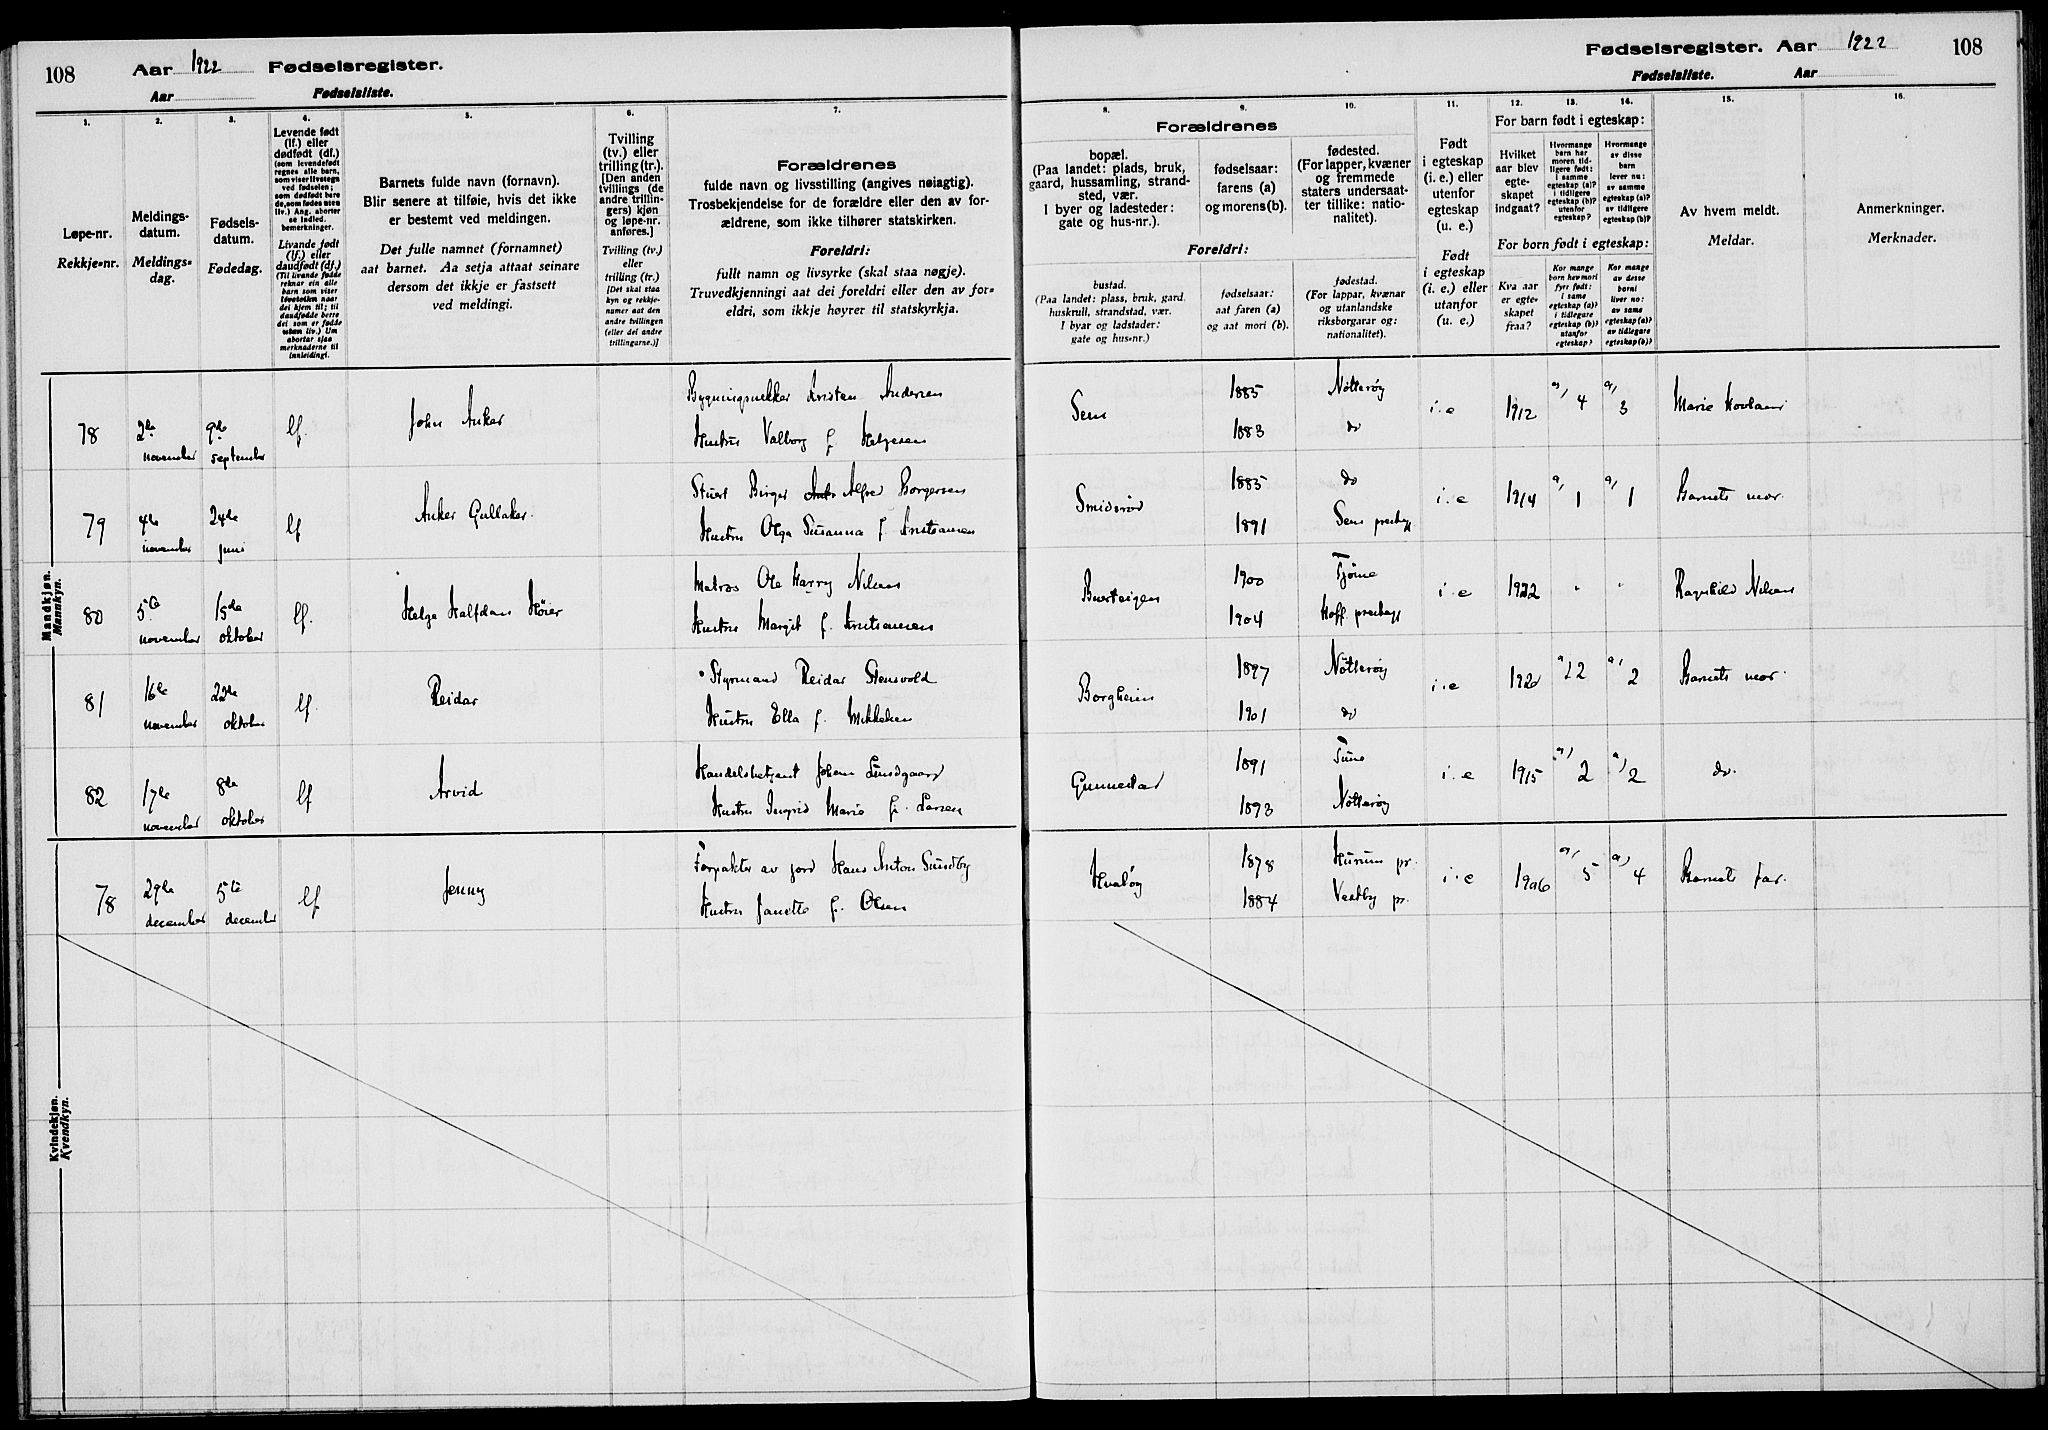 108 Aar 1922 Fødselsregister.
Aar Fødselsliste.
1.
Løpe-nr.
Rekkje-nr.
2.
Meldings-
datum.
Meldings-
dag.
3.
Fødsels-
datum.
Fødedag.
4.
Levende født
(lf.) eller
dødfødt (df.)
(som levendefødt
regnes alle barn,
som viser livstegn
ved fødselen;
som dødfødt bare
de, som fødes uten
liv.) Ang. aborter
se indled.
bemerkninger.
Livande født
(lf.) eller
daudfødt (df.)
(Til livande fødde
reknar ein alle
barn som viser
livsteikn naar
dei kjem til; til
daudfødde berre
dei som er fødde
utan liv.) Um
abortar sjaa
merknaderne til
innleidingi.
5.
Barnets fulde navn (fornavn).
Blir senere at tilføie, hvis det ikke
er bestemt ved meldingen.
Det fulle namnet (fornamnet)
aat barnet. Aa setja attaat seinare
dersom det ikkje er fastsett
ved meldingi.
6.
Tvilling
(tv.) eller
trilling (tr.).
[Den anden
tvillings (de
andre trillin-
gers) kjøn
og løpe-nr.
anføres.]
Tvilling (tv.)
eller
trilling (tr.)
[Det skal staa
kyn og rekkje-
numer aat den
andre tvillingen
(eller dei andre
trillingarne.)]
7.
Forældrenes
fulde navn og livsstilling (angives nøiagtig).
Trosbekjendelse for de forældre eller den av for-
ældrene, som ikke tilhører statskirken.
Foreldri:
fullt namn og livsyrke (skal staa nøgje).
Truvedkjenningi aat dei foreldri eller den av for-
eldri, som ikkje høyrer til statskyrkja.
Mandkjøn.
Mannkyn.
78 2de november 9de september lf. John Anker
Bygningsnekker Kristen Andersen
Hustru Valborg f Helgesen
79 4de november 24de juni lf Anker Gullaker.
Stuert Birger Alfred Borgersen
Hustru Olga Susanna f. Kristiansen
80 5te november 15de oktober lf. Helge Halfdan Høier
Matros Ole Harry Nilsen
Hustru Margit f. Kristiansen
81 16de november 22de oktober lf. Reidar
Styrmand Reidar Stensvold
Hustru Ella f. Mikkelsen
82 17de november 8de oktober lf Arvid
Handelsbetjent Johan Lundgaard
Hustru Ingrid Marie f. Larsen
Kvindekjøn.
Kvendkyn.
78 29de december 5te december lf Jenny
Forpakter av jord Hans Anton Sundby
Hustru Janette f. Olsen
Fødselsregister. Aar 1922 108
Fødselsliste. Aar
8.
Forældrenes
bopæl.
(Paa landet: plads, bruk,
gaard, hussamling, strand-
sted, vær.
I byer og ladesteder:
gate og hus-nr.).
Foreldri:
bustad.
(Paa landet: plass, bruk, gard,
huskrull, strandstad, vær.
I byar og ladstader:
gate og hus-nr.)
9.
fødselsaar:
farens (a)
og morens (b).
fødselsaar:
aat faren (a)
og aat mori (b).
10.
fødested.
(For lapper, kvæner
og fremmede
staters undersaat-
ter tillike: natio-
nalitet).
fødestad.
(For lappar, kvænar
og utanlandske
riksborgarar og:
nationalitet).
11.
Født
i egteskap
(i. e.) eller
utenfor
egteskap
(u. e.)
Født
i egteskap
(i. e.) eller
utanfor
(u. e.)
12.
13.
14.
For barn født i egteskap:
Hvilket
aar blev
egte-
skapet
indgaat?
Hvormange
barn har
moren tid-
ligere født:
i samme
egteskap (a)?
i tidligere
egteskap (b)?
utenfor
egteskap?
Hvormange
av disse
barn
lever nu:
av samme
egteskap (a)?
av tidligere
egteskap (b)?
For born født i egteskap:
Kva aar
er egte-
skapet
fraa?
Kor mange
born hev mori
fyrr født:
i same
egteskap (a)?
i tidlegare
egteskap (b)?
utanfor
egteskap?
Kor mange
av desse
borni
liver no:
av same
egteskap (a)?
av tidlegare
egteskap (b)?
15.
Av hvem meldt.
Meldar.
16.
Anmerkninger.
Merknader.
Sem 1885 Nøtterøy i.e 1912 a) 4 a) 3 Marie Hovland
1883 do
Smidsrød 1885 do i.e 1914 a) 1 a) 1 Barnets mor.
1891 Sem prestegj
1900 Tjøme i.e 1922 " " Ragnhild Nilsen
1904 Hoff prestegj
Borgheim 1897 Nøtterøy i.e 1920 a) 2 a) 2 Barnets mor.
1901 do
Gunnestad 1891 Tune i.e 1915 a) 2 a) 2 do.
1893 Nøtterøy
Hvaløy 1878 Hurum pr. i.e 1906 a) 5 a) 4 Barnets far.
1884 Vestby pr.